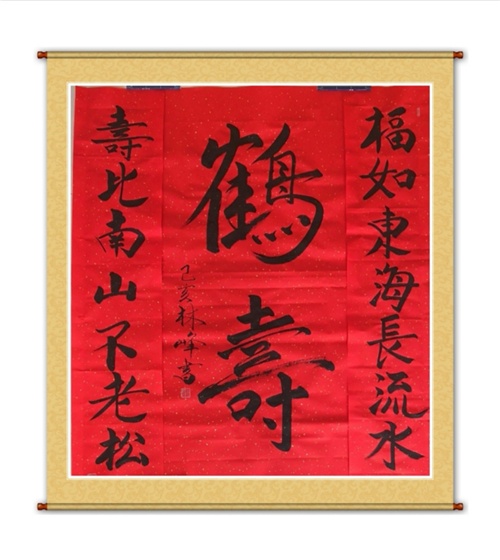 福如東海長流水
鶴壽
己亥林峰書
壽比南山不老松